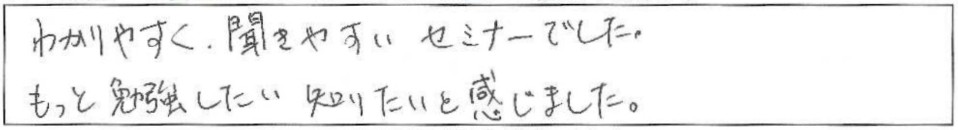 わかりやすく、聞きやすい セミナーでした。
もっと勉強したい 知りたいと感じました。